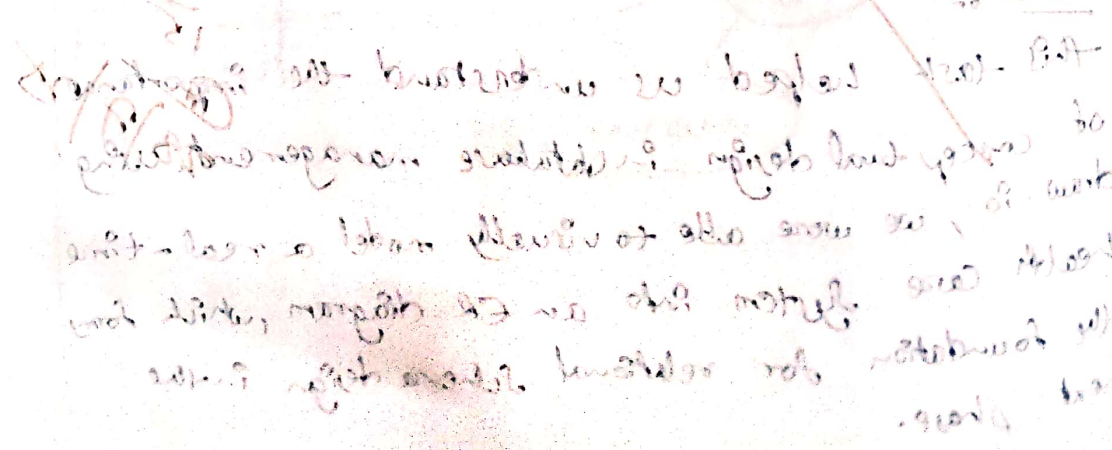 This task helped us understand the importance
of conceptual design in database management. Using
draw.io, we were able to visually model a real-time
health care system into an ER diagram, which forms
the foundation for relational schema design in the
next phase.